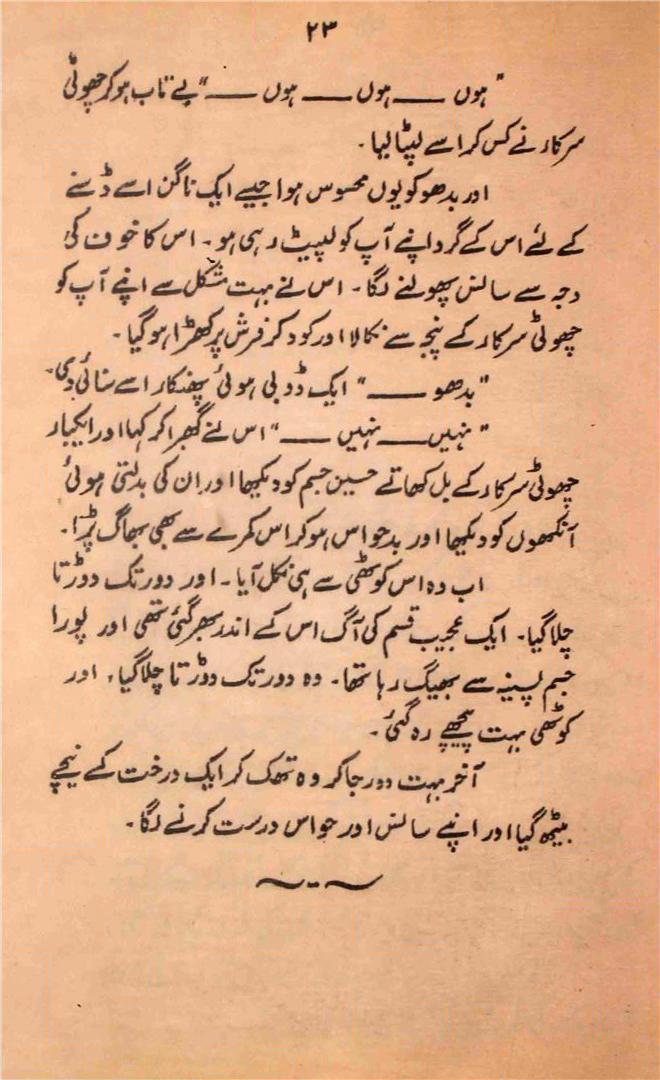 ۲۳
"ہوں ـــــ ہوں ـــــ ہوں ـــــ" بے تاب ہو کر چھوٹی
سرکار نے کس کر اسے لپٹا لیا۔
اور بدھو کو یوں محسوس ہوا جیسے ایک ناگن اسے ڈسنے
کے لئے اس کے گرد اپنے آپ کو لپیٹ رہی ہو۔ اس کا خوف کی
وجہ سے سانس پھولنے لگا۔ اس نے بہت مشکل سے اپنے آپ کو
چھوٹی سرکار کے پنجہ سے نکالا اور کود کر فرش پر کھڑا ہو گیا۔
"بدھو ـــــ" ایک ڈوبی ہوئی پھنکار اسے سنائی دی۔
"نہیں ـــــ نہیں ـــــ" اس نے گھبرا کر کہا اور ایکبار
چھوٹی سرکار کے بل کھاتے حسین جسم کو دیکھا اور ان کی بدلتی ہوئی
آنکھوں کو دیکھا اور بدحواس ہو کر اس کمرے سے بھی بھاگ پڑا۔
اب وہ اس کوٹھی سے ہی نکل آیا۔ اور دور تک دوڑتا
چلا گیا۔ ایک عجیب قسم کی آگ اس کے اندر بھر گئی تھی اور پورا
جسم پسینہ سے بھیگ رہا تھا۔ وہ دور تک دوڑتا چلا گیا، اور
کوٹھی بہت پیچھے رہ گئی۔
آخر بہت دور جا کر وہ تھک کر ایک درخت کے نیچے
بیٹھ گیا اور اپنے سانس اور حواس درست کرنے لگا۔